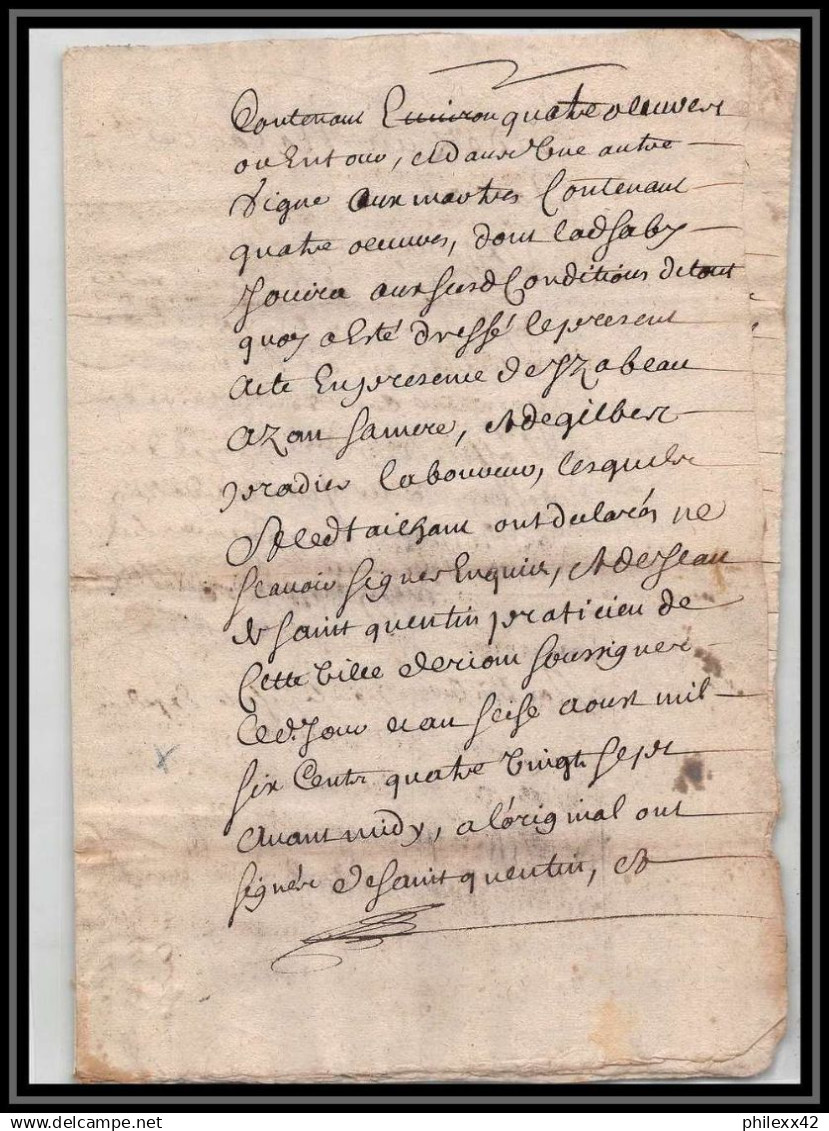 Contenant Environ quatre oeuvres
ou Entour, et dans Une autre
Vigne aux martres Contenant
quatre oeuvres, dont lad
Jouira aux susd Conditions de tout
quoy a Esté dressé le present
acte En presence de Yzabeau
azan sa mere, et de gilbert
pradier laboureur, lesquels
et led tailhant ont declarés ne
scavoir signer Enquis, et de Jean
de saint quentin praticien de
Cette Ville de riom soussigner
led. Jour et an seise aoust mil
six Cents quatre Vingt sept
avant midy, a l'original ont
signés de saint quentin, et
philexx42